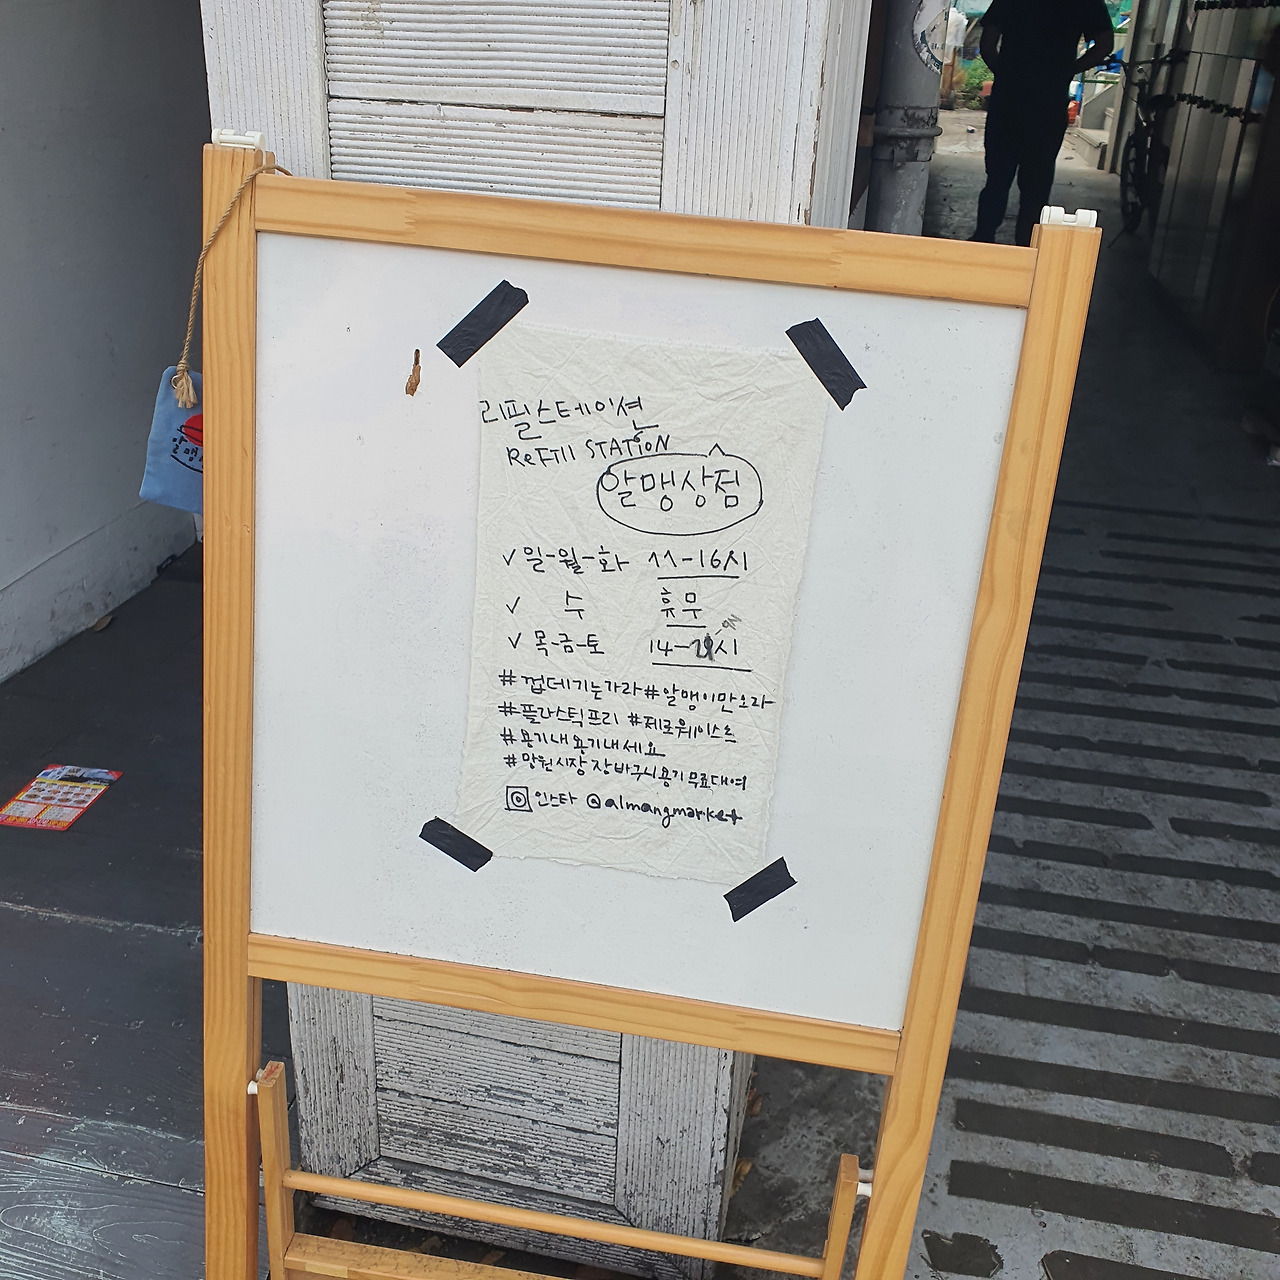 리필스테이션
ReFill STATiON
알맹상점
✓ 일-월-화 11-16시
✓ 수 휴무
✓ 목-금-토 14- 시
#껍데기는가라 #알맹이만오라
#플라스틱프리 #제로웨이스트
#용기내용기내세요
#망원시장장바구니용기무료대여
인스타 @almangmarket
알맹